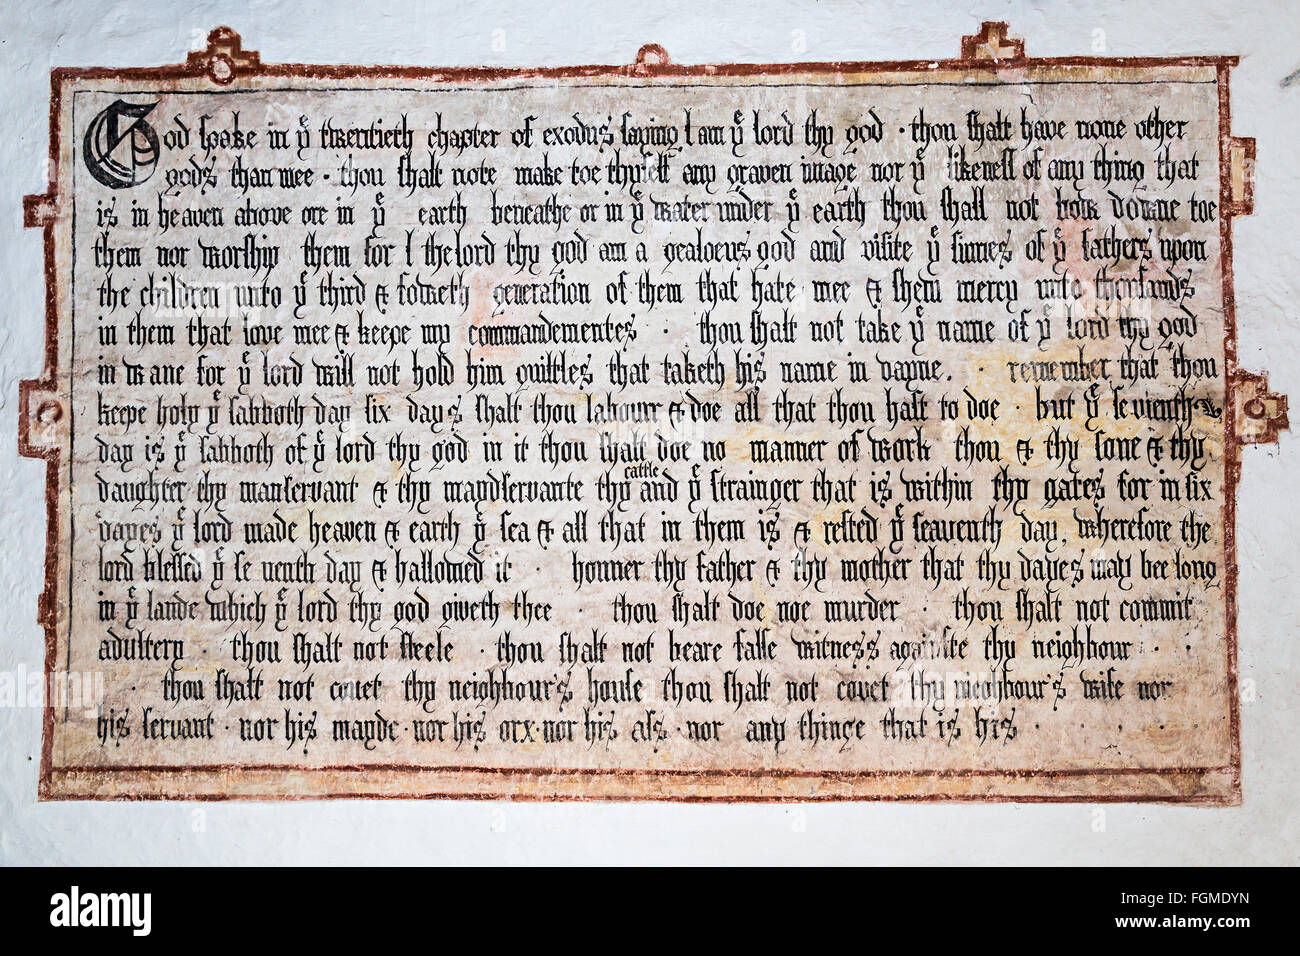 God spake in yᵉ twentieth chapter of exodus saying I am yᵉ lord thy god · thou shalt have none other
gods than mee · thou shalt note make toe thyself any graven image nor yᵉ likeness of any thing that
is in heaven above ore in yᵉ earth beneathe or in yᵉ water under yᵉ earth thou shall not bow downe toe
them nor worship them for I the lord thy god am a gealoeus god and visite yᵉ sinnes of yᵉ fathers upon
the children unto yᵉ third & foweth generation of them that hate mee & shew mercy unto thousands
in them that love mee & keepe my commandementes · thou shalt not take yᵉ name of yᵉ lord thy god
in wane for yᵉ lord will not hold him guiltles that taketh his name in vayne. · remember that thou
keepe holy yᵉ sabboth day six days shalt thou labour & doe all that thou hast to doe · but yᵉ sevienth
day is yᵉ sabboth of yᵉ lord thy god in it thou shalt doe no manner of work thou & thy sone & thy
cattle
daughter thy manservant & thy maydservante thy and yᵉ strainger that is within thy gates for in six
dayes yᵉ lord made heaven & earth yᵉ sea & all that in them is & rested yᵉ seaventh day, wherefore the
lord blessed yᵉ seventh day & hallowed it · honner thy father & thy mother that thy dayes may bee long
in yᵉ lande which yᵉ lord thy god giveth thee · thou shalt doe noe murder · thou shalt not commit
adultery · thou shalt not steele · thou shalt not beare false witness againste thy neighbour · ·
· thou shalt not covet thy neighbour's house thou shalt not covet thy neighbour's wife nor
his servant · nor his mayde · nor his oxx · nor his ass · nor any thinge that is his · · · ·
alamy
Image ID: FGMDYN
www.alamy.com